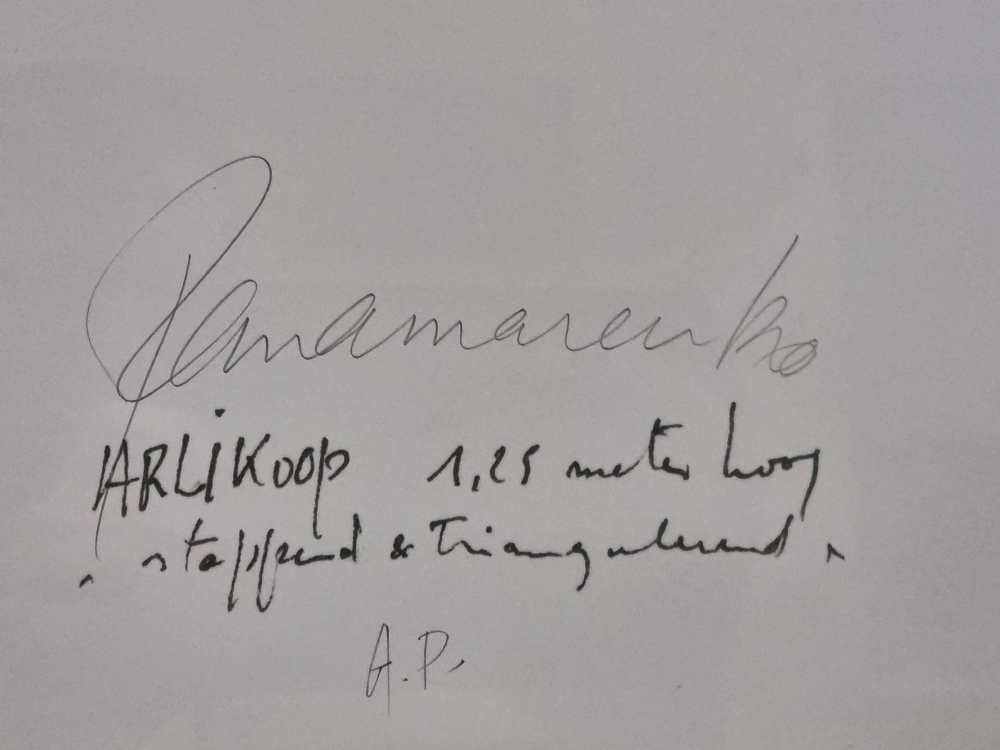 Panamarenko
ARLiKOOP 1,25 meter hoog
stappend & Triangulerend
A.P.